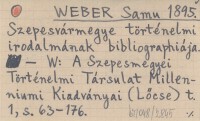 WEBER Samu 1895.
Szepesvármegye történelmi
irodalmának bibliographiája.
— W: A Szepesmegyei
Történelmi Társulat Millen-
niumi Kiadványai (Lőcse) t.
1, s. 63-176.